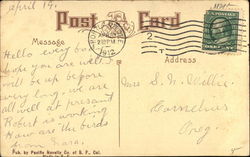 april 19.
Post Card
Message
Address
Hello every body
hope you are well. I
will be up before
very long. we are
all well at present
Robert is working
How are the birds
from Sara.
1912
Mrs S. W. Willis
Cornelius
Oreg.
Pub. by Pacific Novelty Co. of S. F., Cal.